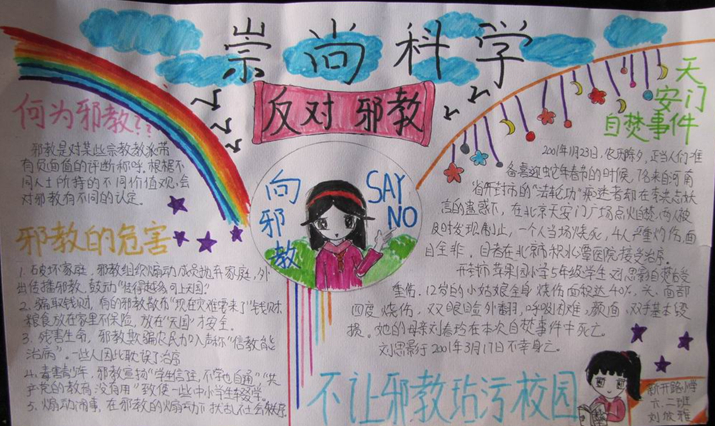 崇尚科学
反对邪教
何为邪教??
邪教是对某些宗教教派带
有负面值的评断称呼。根据不
同人士所持的不同价值观,会
对邪教有不同的认定。
邪教的危害
1、破坏家庭,邪教组织煽动成员抛弃家庭,外
出传播邪教,鼓动
2、骗取钱财,有的邪教散布"现在灾难要来了"钱财
粮食放在家里不保险,放在"天国"才安全。
3、死害生命,邪教欺骗农民为入教的"信教能
治病"。一些人因此耽误了治疗
4、毒害青少年,邪教宣扬"学生信徒,不学也自通""共
产党的教育没有用"致使一些中小学生辍学。
5、煽动闹事,在邪教的煽动下扰乱社会秩序
向邪教
SAY
NO
天安门
自焚事件
2001年1月23日,农历除夕,正当人们准
备喜迎蛇年春节的时候,7名来自河南
省开封市的"法轮功"痴迷者却在李洪志妖
言的蛊惑下,在北京天安门广场点火自焚,两人被
及时发现制止,一个人当场烧死,4人严重灼伤,面
目全非,目者在北京市积水潭医院接受治疗。
开封市苹果园小学5年级学生刘思影自焚受
重伤,12岁的小姑娘全身烧伤面积达40%,头、面部
四度烧伤,双眼睑外翻,呼吸困难,颜面,双手基本毁
损。她的母亲刘春玲在本次自焚事件中死亡。
刘思影于2001年3月17日不幸身亡。
不让邪教玷污校园
新开路小学
六.二班
刘